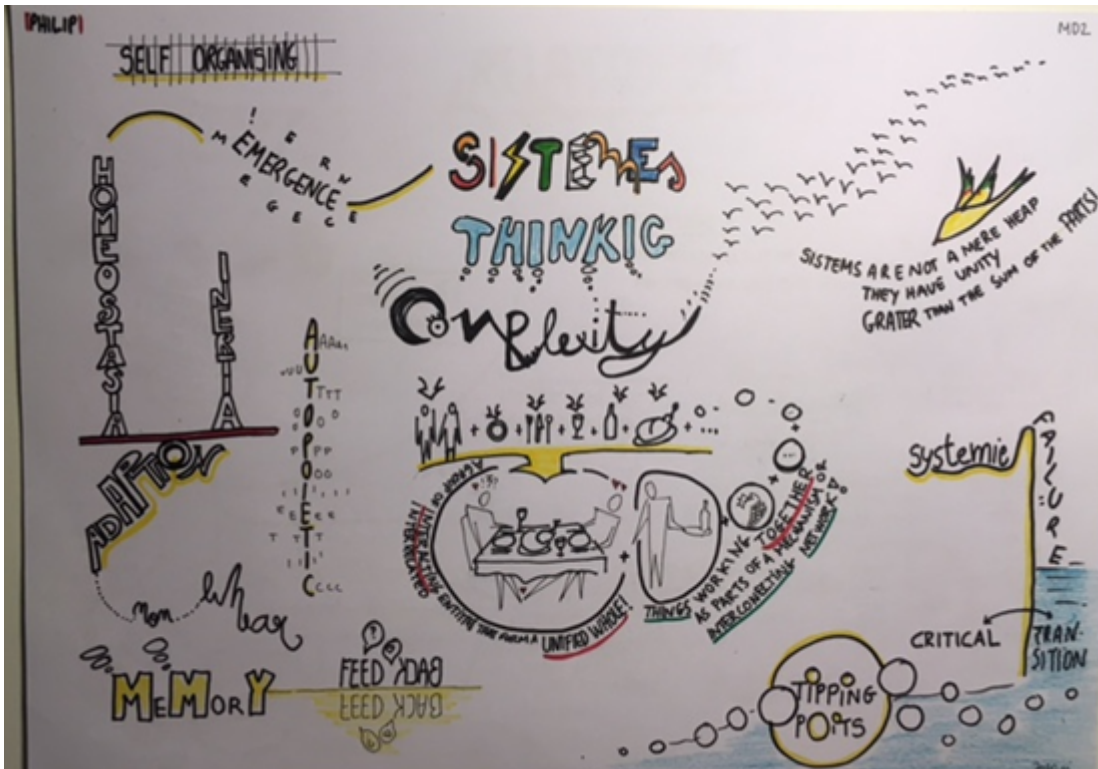 PHILIP
MD2
SELF ORGANISING
EMERGENCE
SISTEMES
THINKIG
COMPLEXITY
SISTEMS ARE NOT A MERE HEAP
THEY HAVE UNITY
GRATER THAN THE SUM OF THE PARTS!
HOMEOSTASIA
INERTIA
AUTOPOIETIC
ADAPTION
A GROUP OF INTERACTING
INTERRELATED
ENTITIES THAT FORM A UNIFIED WHOLE!
THINGS WORKING TOGETHER
AS PARTS OF A MECHANISM OR
INTERCONNECTING NETWORK
systemic
FAILURE
CRITICAL
TRAN-
SITION
TIPPING
POITS
MEMORY
FEED BACK
FEED BACK